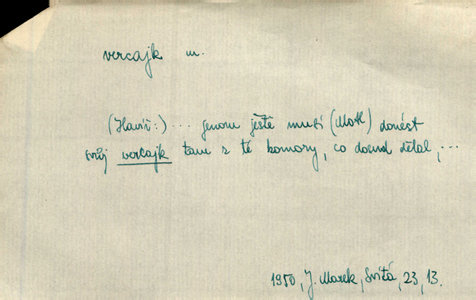 vercajk m.
(Havíř:) ... jenom ještě musí (Motl) donést
svůj vercajk tam z té komory, co dosud dělal, ...
1950, J. Marek, Svítá, 23, 13.